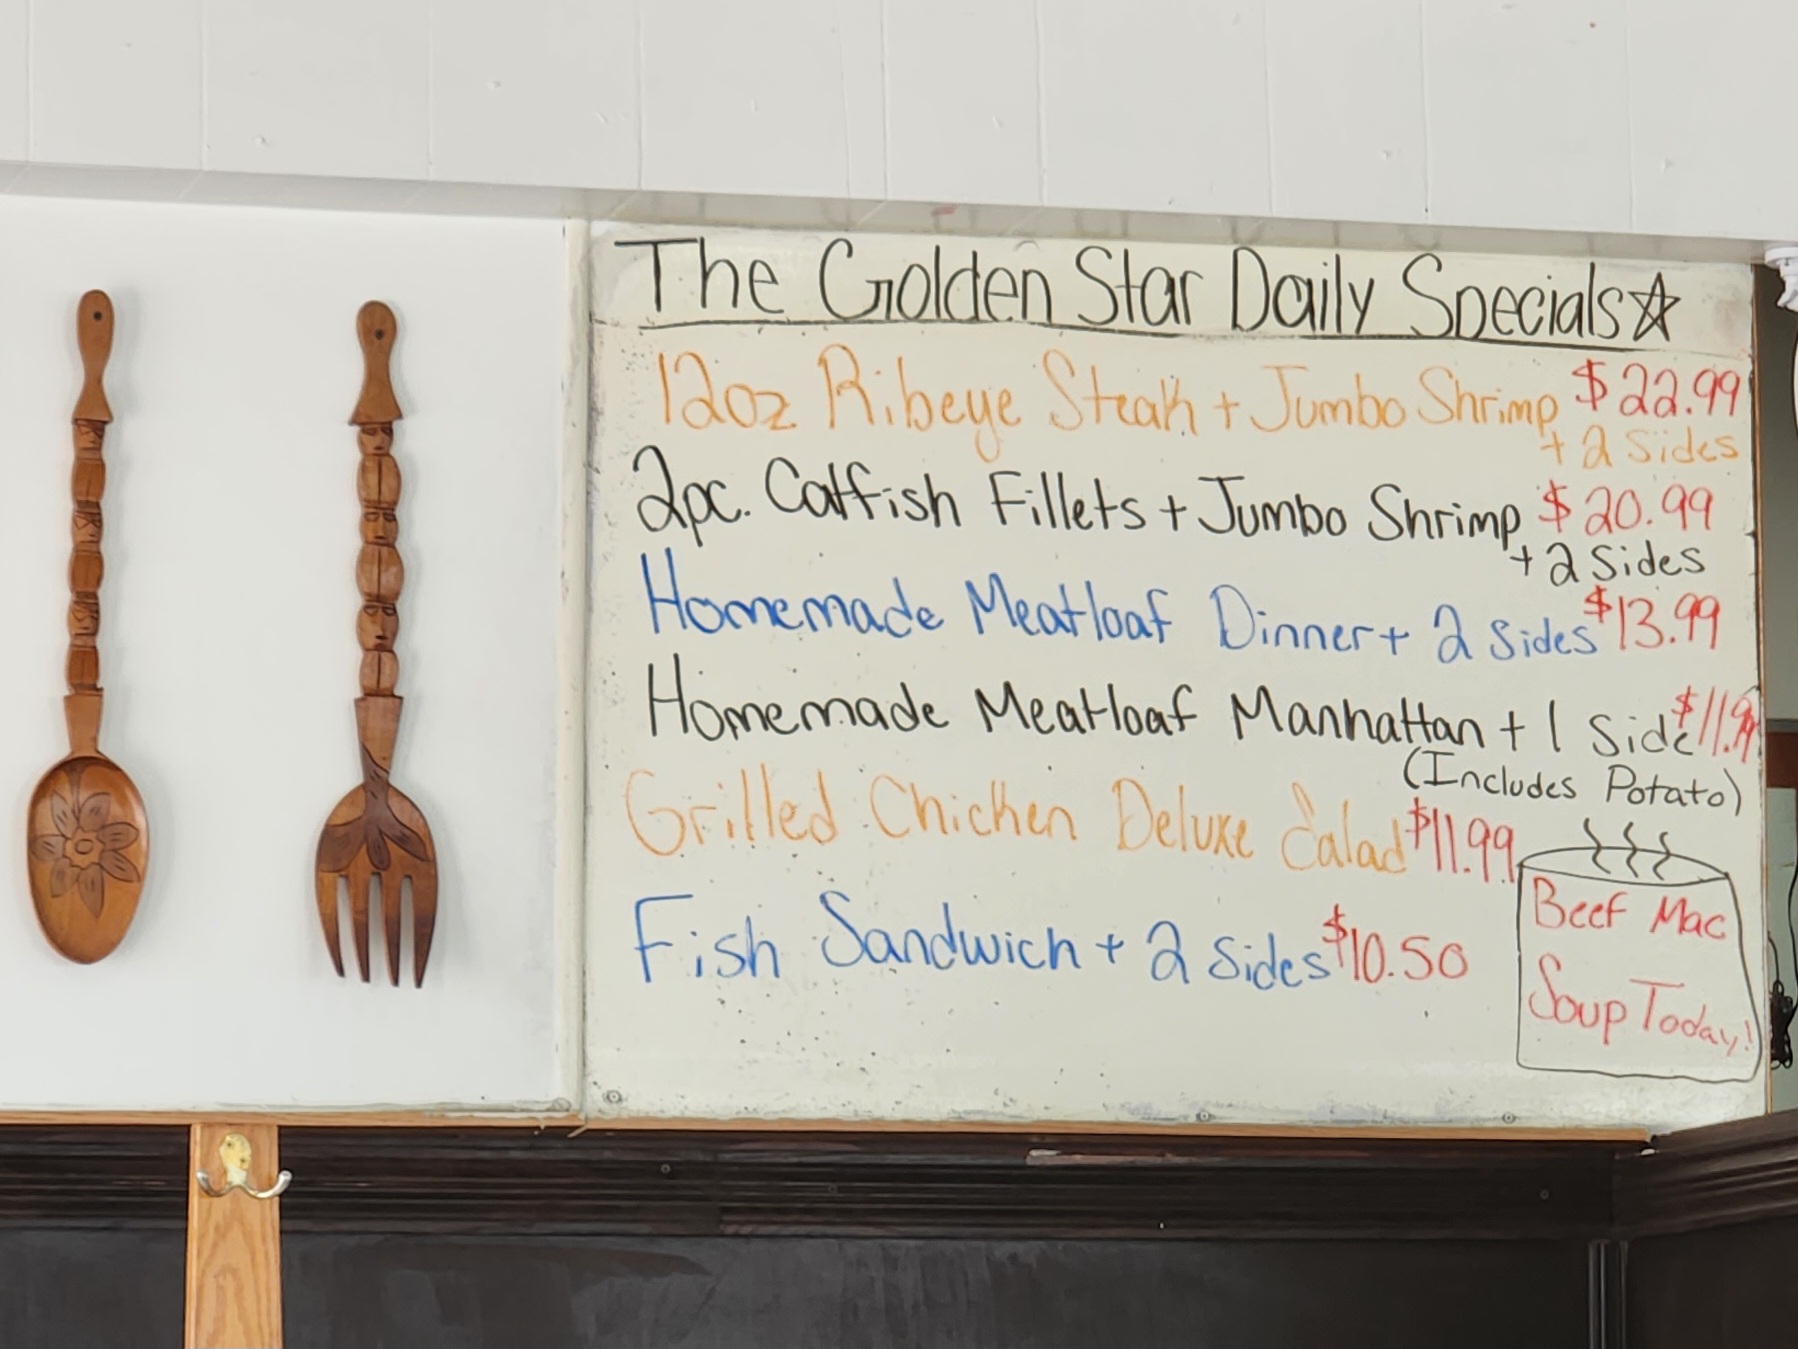 The Golden Star Daily Specials☆
12oz Ribeye Steak + Jumbo Shrimp $22.99
+ 2 Sides
2pc. Catfish Fillets + Jumbo Shrimp $20.99
+ 2 Sides
Homemade Meatloaf Dinner + 2 Sides $13.99
Homemade Meatloaf Manhattan + 1 Side $11.99
(Includes Potato)
Grilled Chicken Deluxe Salad $11.99
Fish Sandwich + 2 Sides $10.50
Beef Mac
Soup Today!